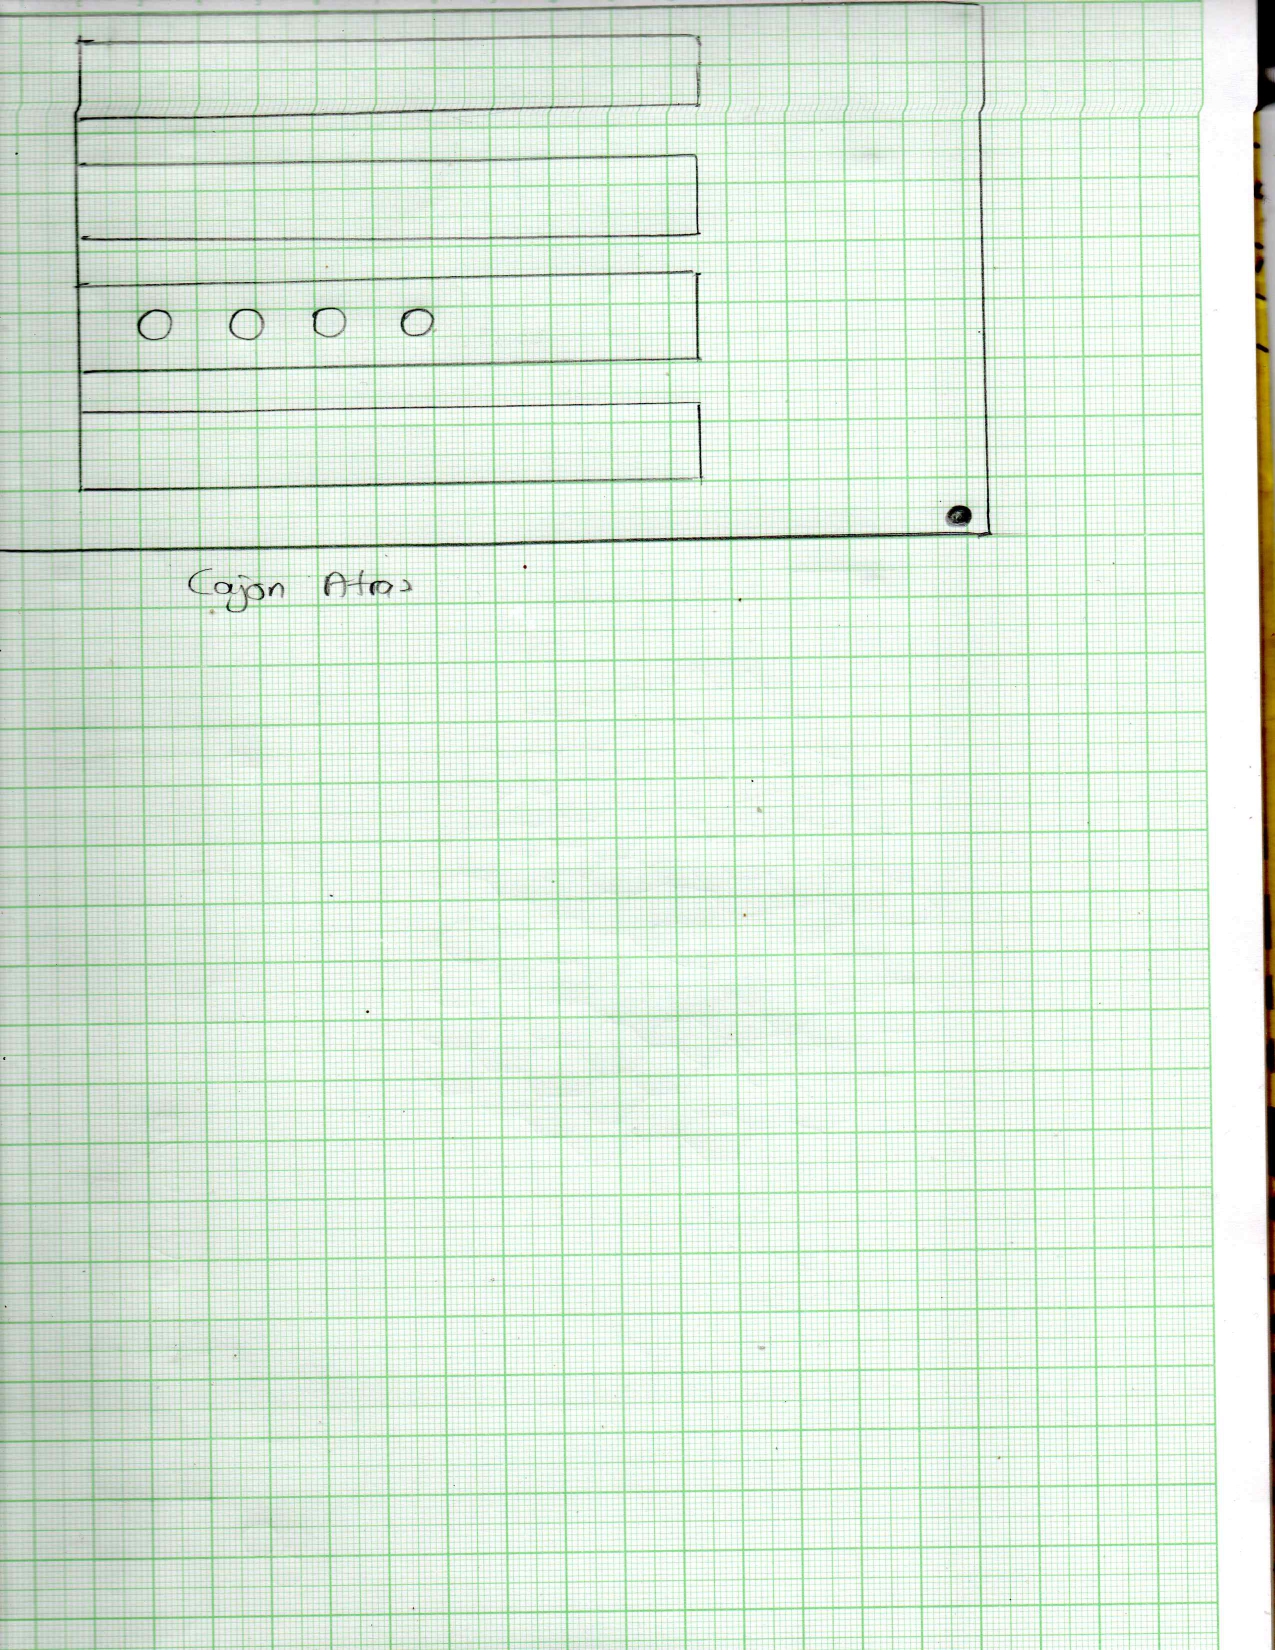 Cajon Atras